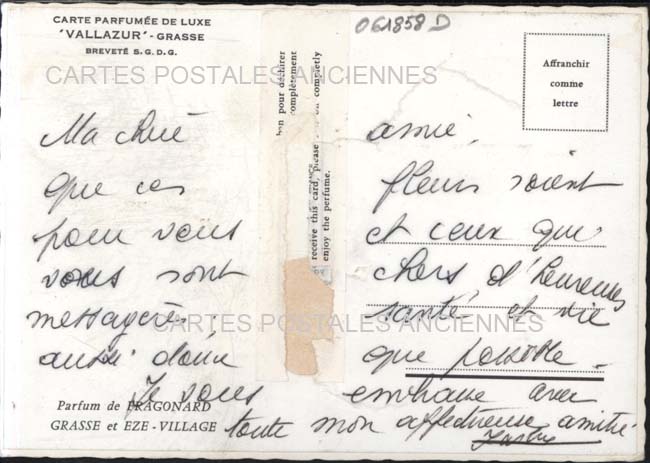 CARTE PARFUMÉE DE LUXE
'VALLAZUR' - GRASSE
BREVETÉ S. G. D. G.
061858 D
Affranchir
comme
lettre
CARTES POSTALES ANCIENNES
bon pour déchirer
complètement
receive this card, please
ou completly
enjoy the perfume.
Ma chère amie,
que ces fleurs soient
pour vous et ceux qui
vous sont chers, d'heureuses
messagères santé et vie
aussi douce que possible.
Je vous embrasse avec
toute mon affectueuse amitié
CARTES POSTALES ANCIENNES
Parfum de FRAGONARD
GRASSE et EZE - VILLAGE